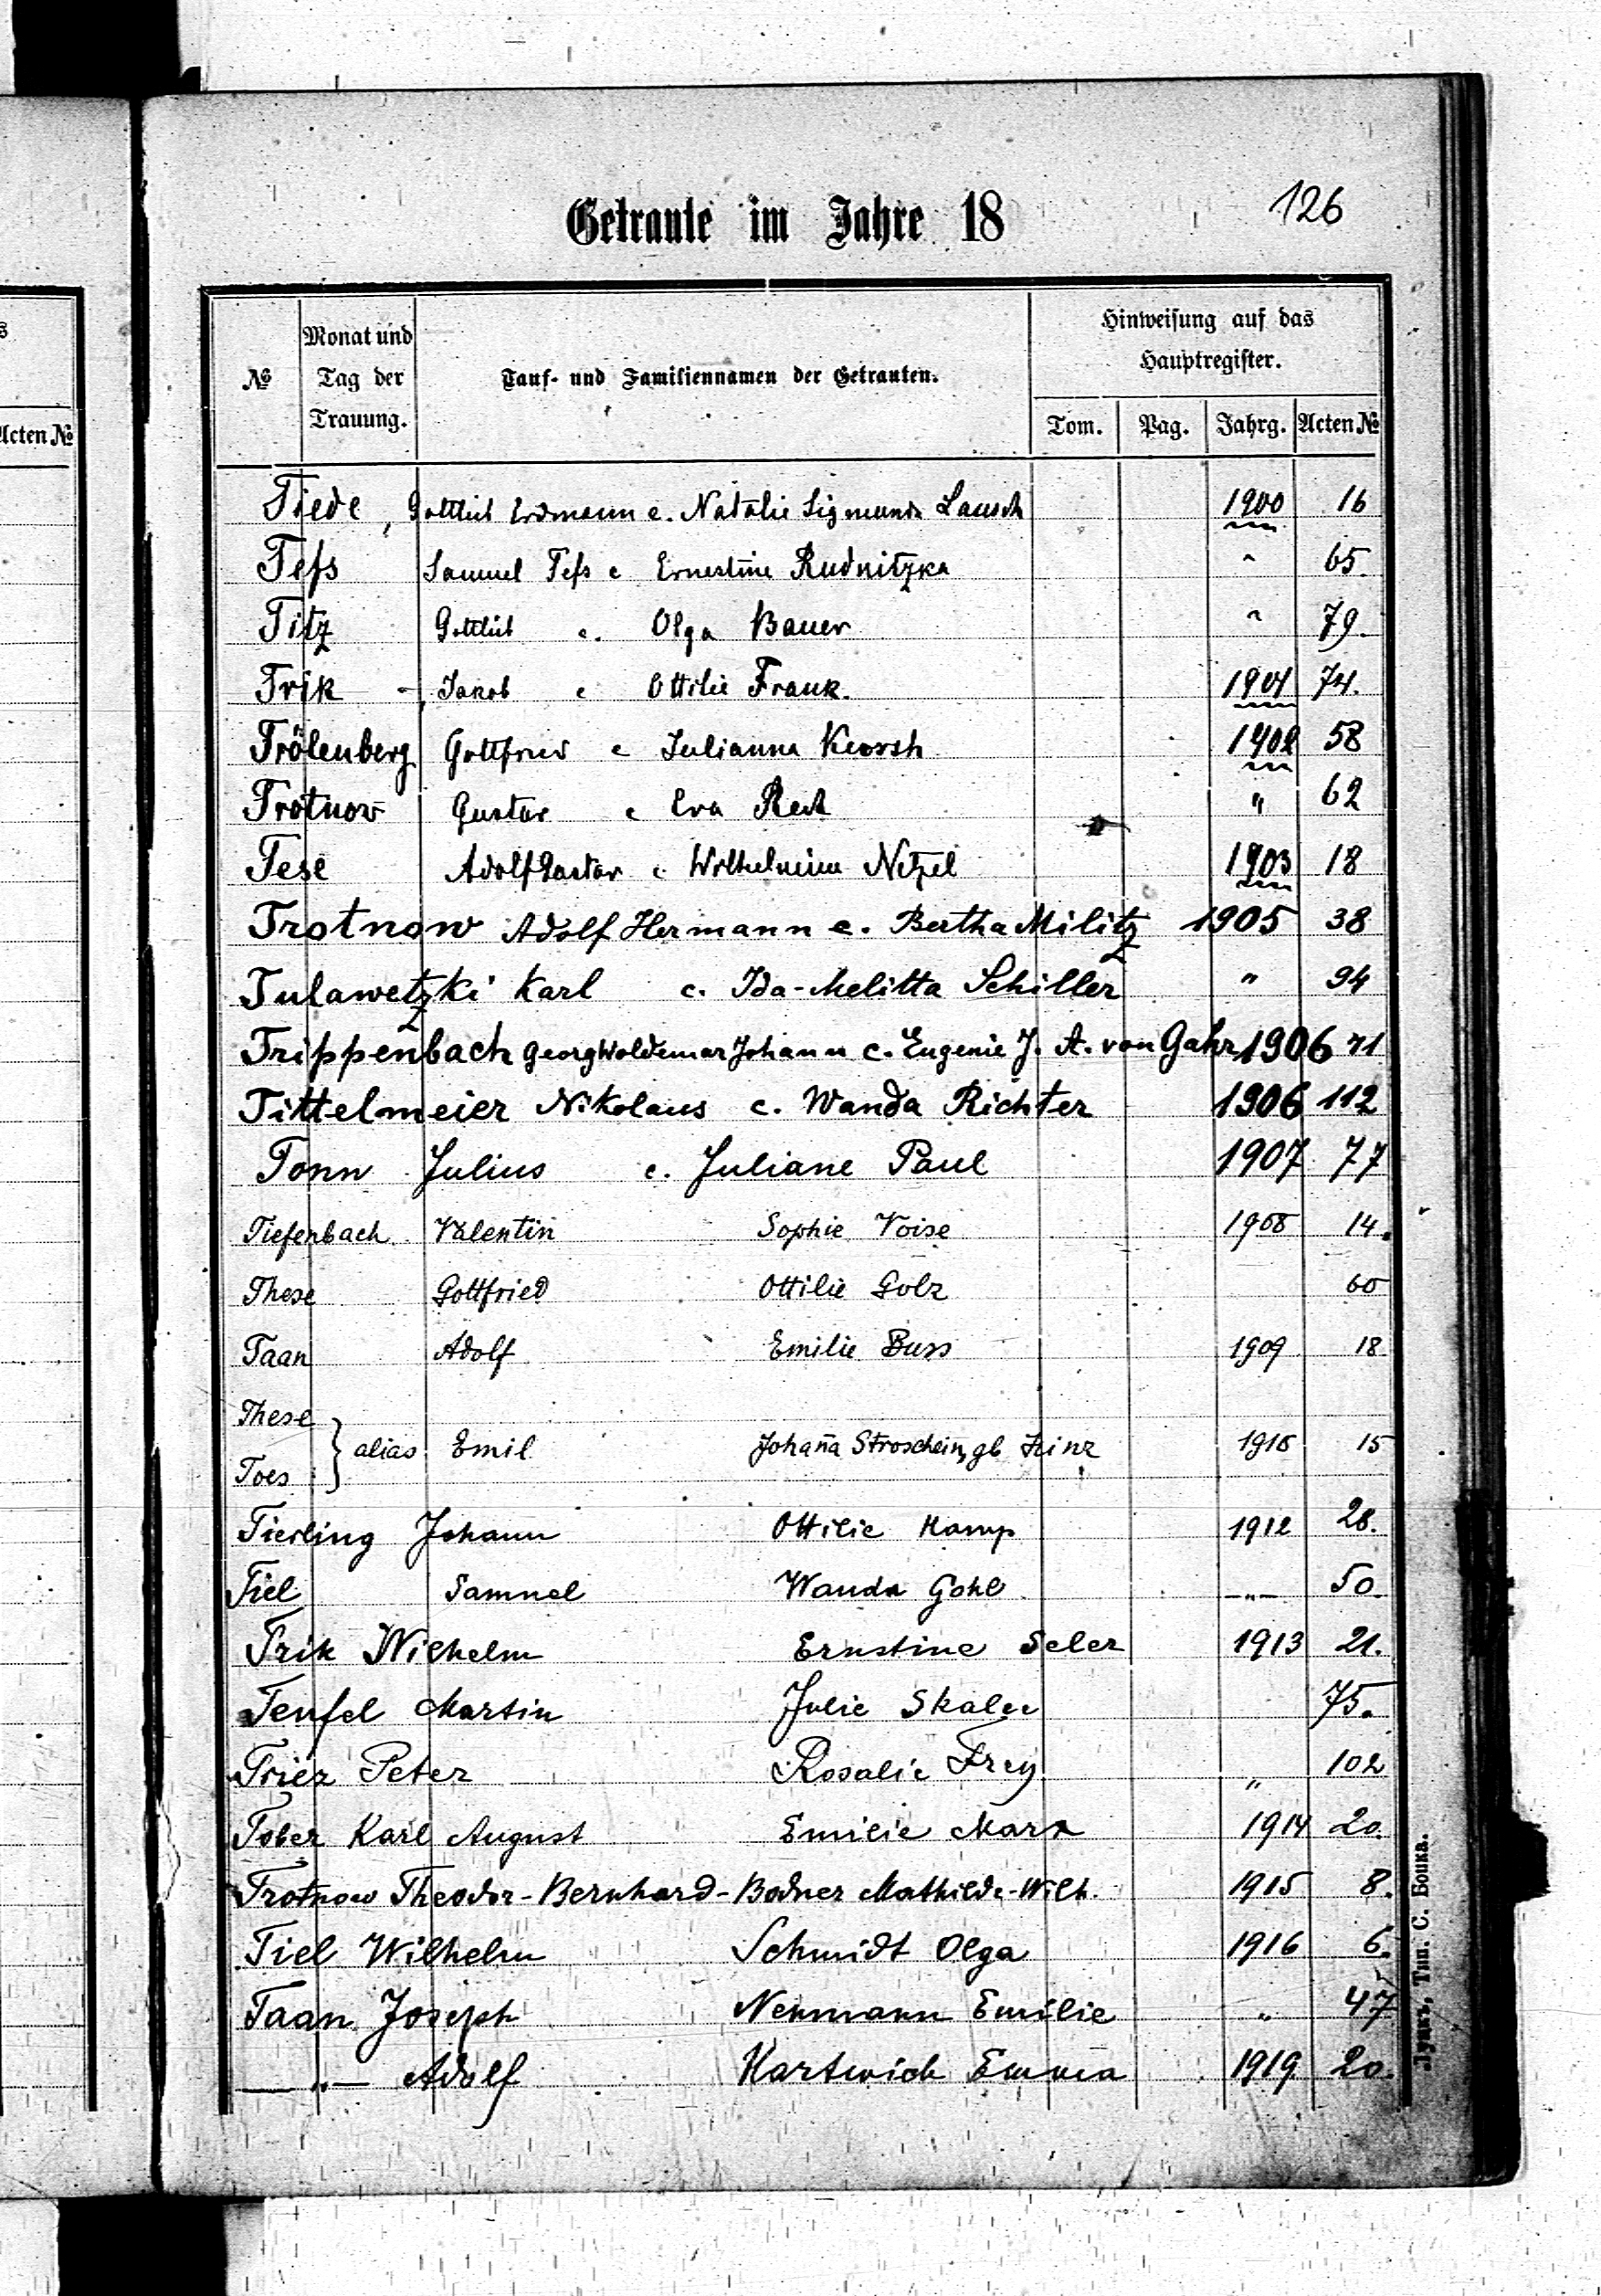 126
Getraute im Jahre 18
№
Monat und
Tag der
Trauung.
Tauf- und Familiennamen der Getrauten.
Hinweisung auf das
Hauptregister.
Tom. Pag. Jahrg. Acten №
s
Acten №
Tiede, Gottlieb Erdmann c. Natalie Sigmunde Lausch 1900 16
Tefs Samuel Tefs c Ernestine Rudnitzka " 65.
Titz Gottlieb c. Olga Bauer " 79.
Trik - Jakob c Ottilie Frank. 1901 74.
Trölenberg Gottfried c Julianna 1902 58
Trotnow Gustav c Eva " 62
Tese Adolf Gustav c Wilhelmine Netzel 1903 18
Trotnow Adolf Hermann c. Bertha Militz 1905 38
Tulawetzki Karl c. Ida-Melitta Schiller " 94
Trippenbach Georg Woldemar Johann c. Eugenie J. A. von Gahr 1906 71
Tittelmeier Nikolaus c. Wanda Richter 1906 112
Tonn Julius c. Juliane Paul 1907 77
Tiefenbach Valentin Sophie Voise 1908 14.
These Gottfried Ottilie Golz 60
Taan Adolf Emilie Buss 1909 18
These
} alias Emil Johaña Stroschein, gb 15
Toes
Tierling Johann Ottilie Kamp 1912 28.
Tiel Samuel Wanda Gohl —"— 50
Trik Wilhelm Ernstine Seler 1913 21.
Teufel Martin Julie Skaler 75.
Triez Peter Rosalie Frey " 102
Tober Karl August Emilie Marx 1914 20.
Trotnow Theodor-Bernhard- Bodner Mathilde-Wilh. 1915 8.
Tiel Wilhelm Schmidt Olga 1916 6.
Taan Joseph Neumann Emilie " 47
—"— Adolf Hartwich Emma 1919 20.
Луцкъ, Тип. С. Бойка.